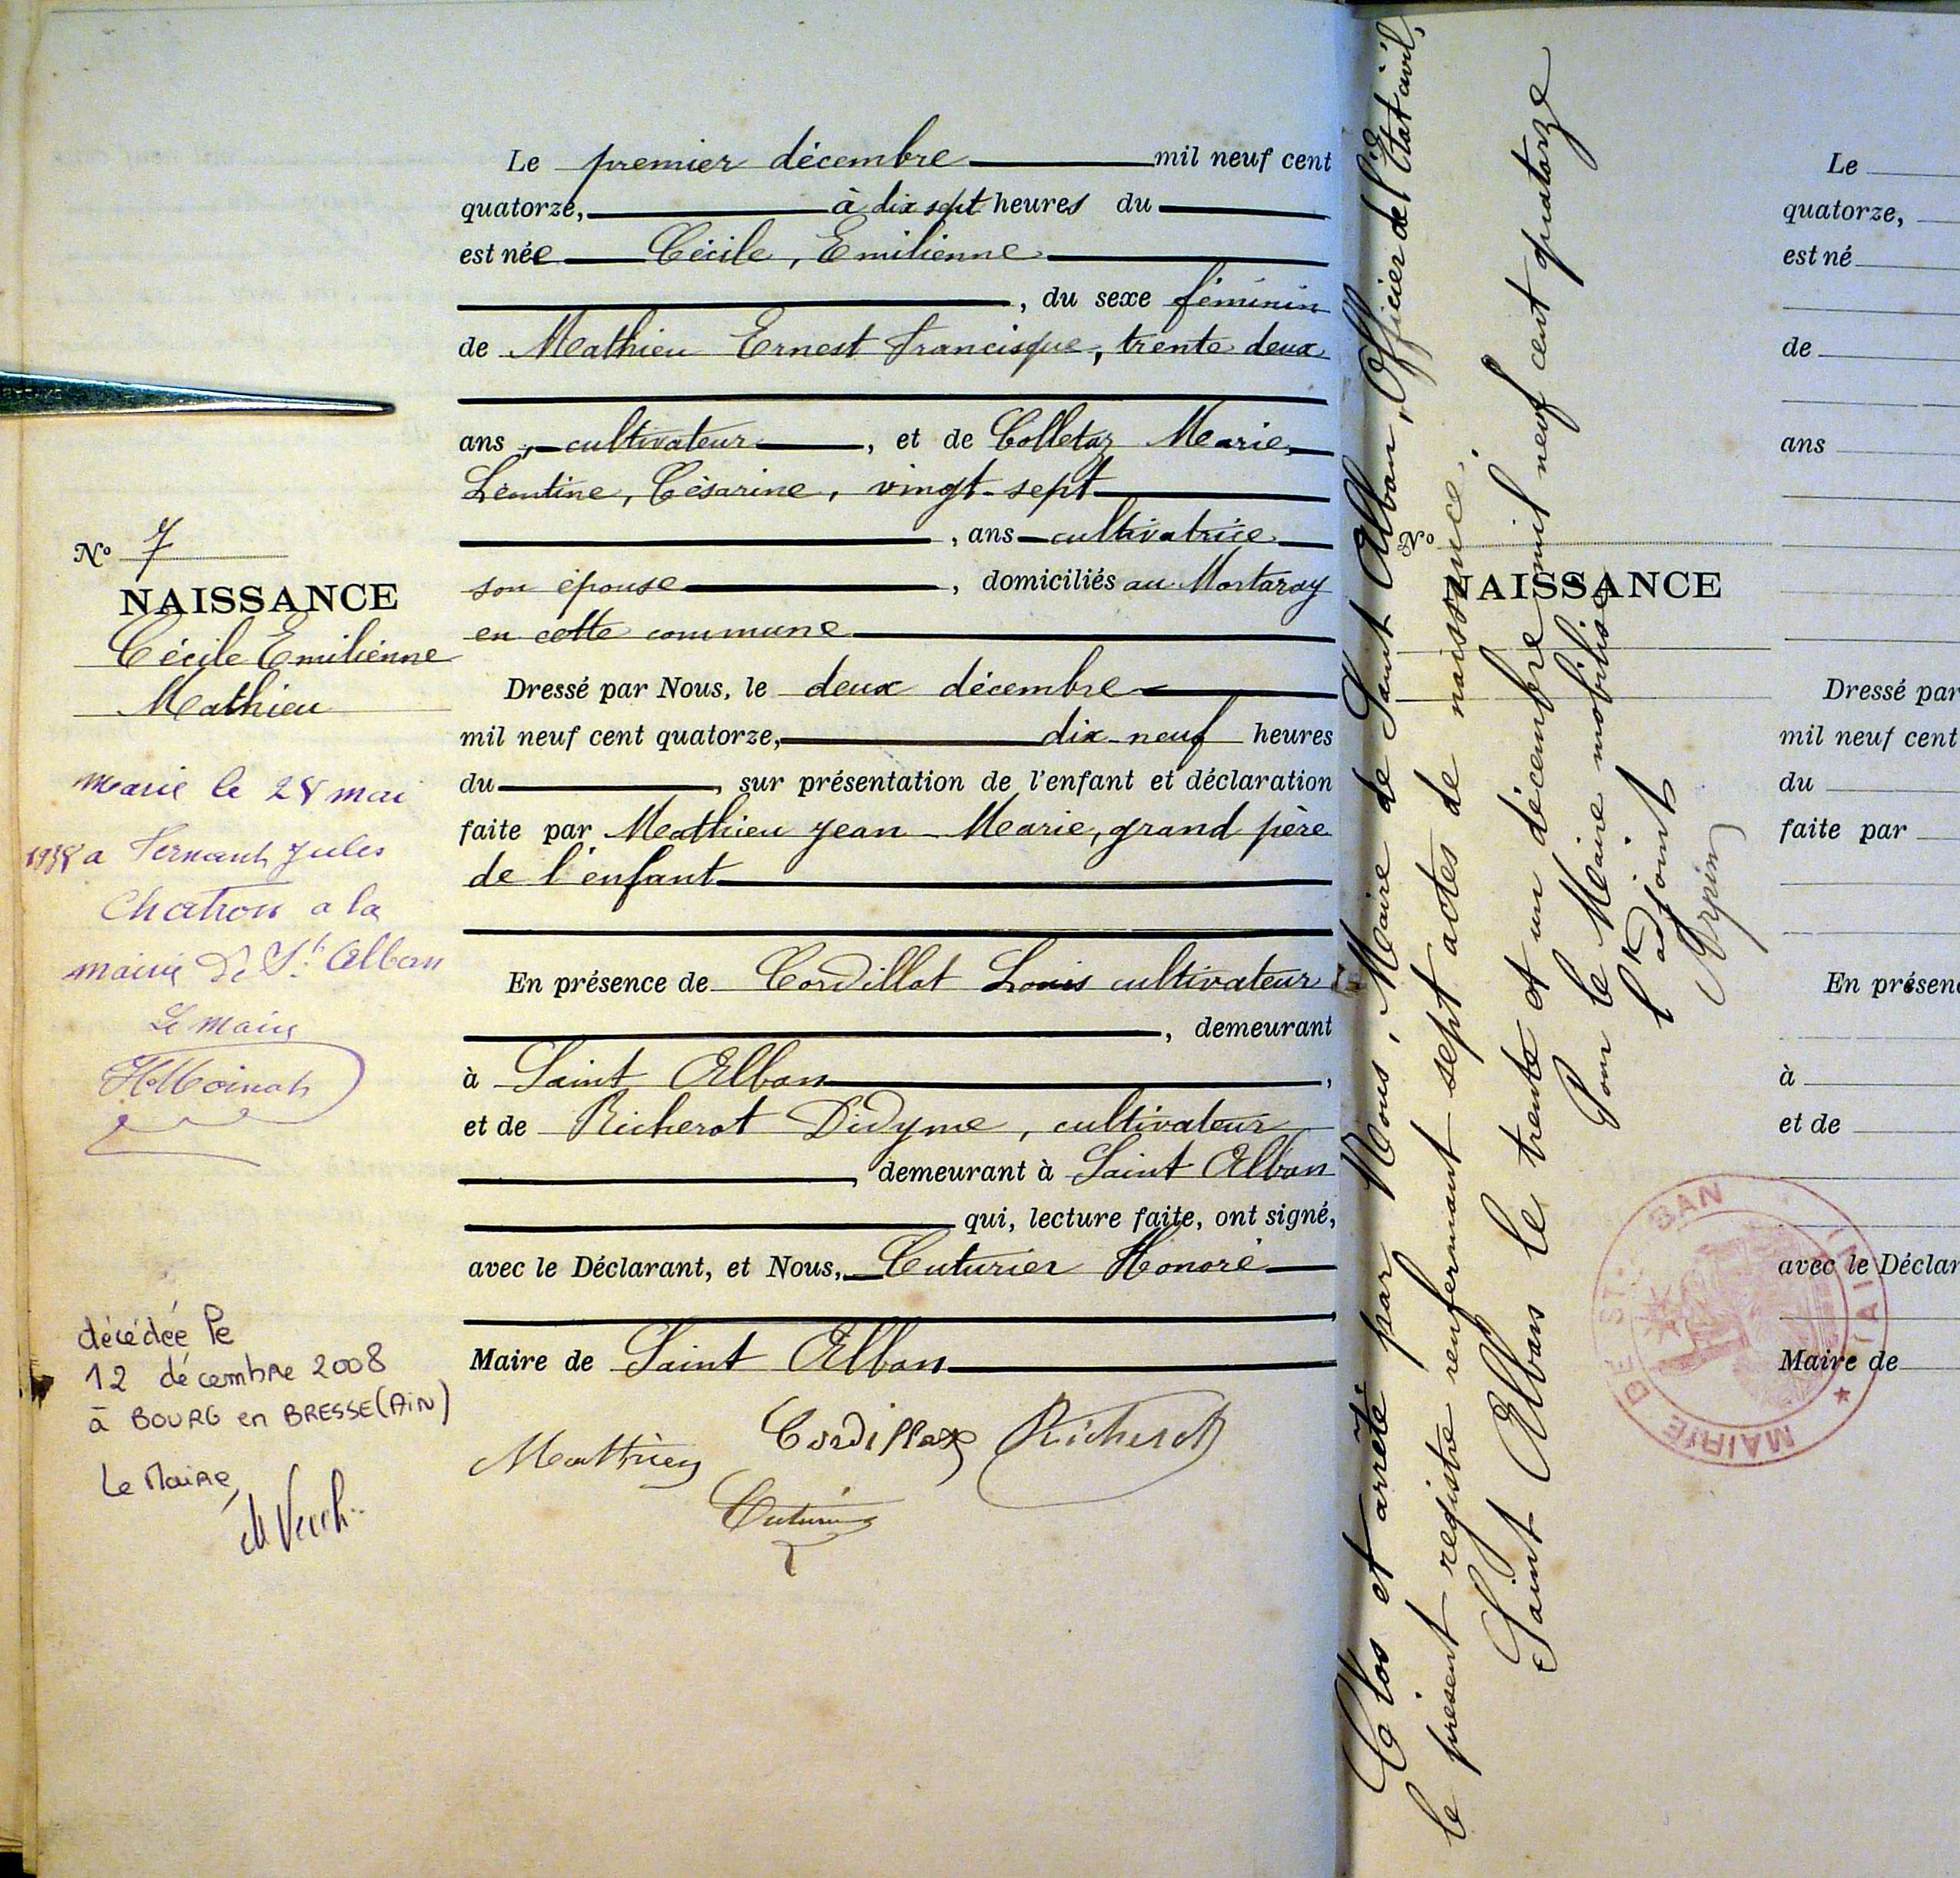 Le premier décembre mil neuf cent
quatorze, à dix sept heures du
est née Cécile, Emilienne
, du sexe féminin
de Mathieu Ernest Francisque, trente deux
ans, cultivateur, et de Colletaz Marie,
Léontine, Césarine, vingt-sept
, ans cultivatrice
son épouse, domiciliés au Mortaray
en cette commune
Dressé par Nous, le deux décembre
mil neuf cent quatorze, dix-neuf heures
du, sur présentation de l'enfant et déclaration
faite par Mathieu Jean-Marie, grand père
de l'enfant
En présence de Cordillot Louis cultivateur
, demeurant
à Saint Alban,
et de Richerot Didyme, cultivateur
, demeurant à Saint Alban
qui, lecture faite, ont signé,
avec le Déclarant, et Nous, Cuturier Honoré
Maire de Saint Alban
Mathieu Cordillot Richerot
Cuturier
No 7
NAISSANCE
Cécile Emilienne
Mathieu
Marié le 28 mai
1938 a Fernand Jules
Chatron a la
mairie de St. Alban
Le Maire
décédée le
12 décembre 2008
à BOURG en BRESSE (AIN)
Le Maire,
Clos et arrêté par Nous, Maire de Saint Alban, Officier de l'Etat civil,
le présent registre renfermant sept actes de naissance.
Saint Alban le trente et un décembre mil neuf cent quatorze
Pour le Maire mobilisé
l'adjoint
Arpin
No
NAISSANCE
MAIRIE DE ST. BAN (AIN)
Le
quatorze,
est né
de
ans
Dressé par
mil neuf cent
du
faite par
En présen
à
et de
avec le Déclar
Maire de